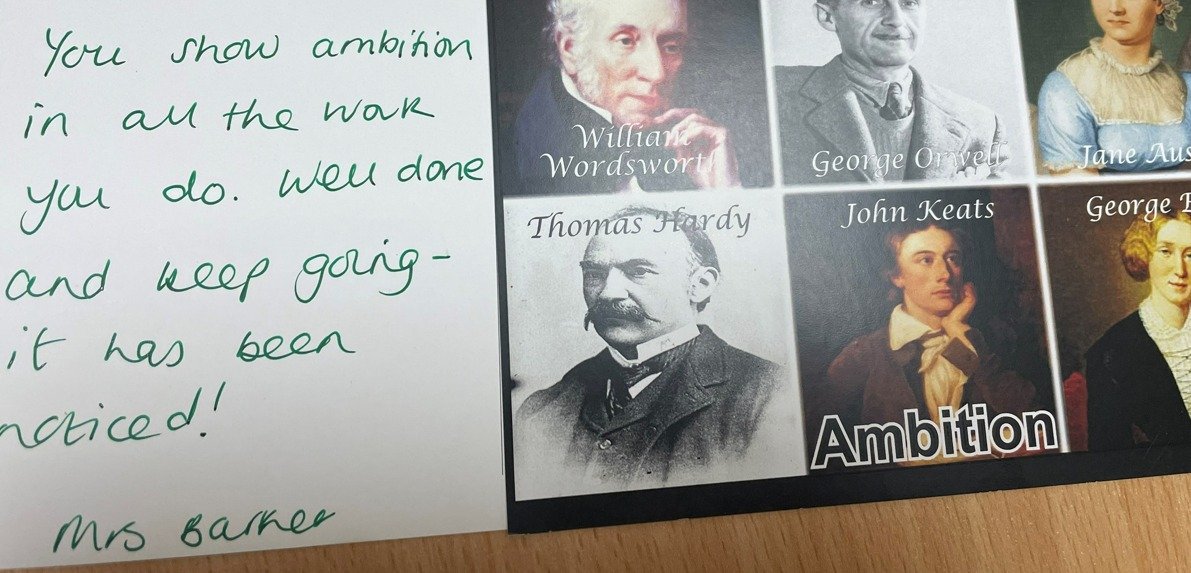 You show ambition
in all the work
you do. Well done
and keep going-
it has been
noticed!
Mrs Barker
William
Wordsworth
George Orwell
Jane Aus
Thomas Hardy
John Keats
George E
Ambition